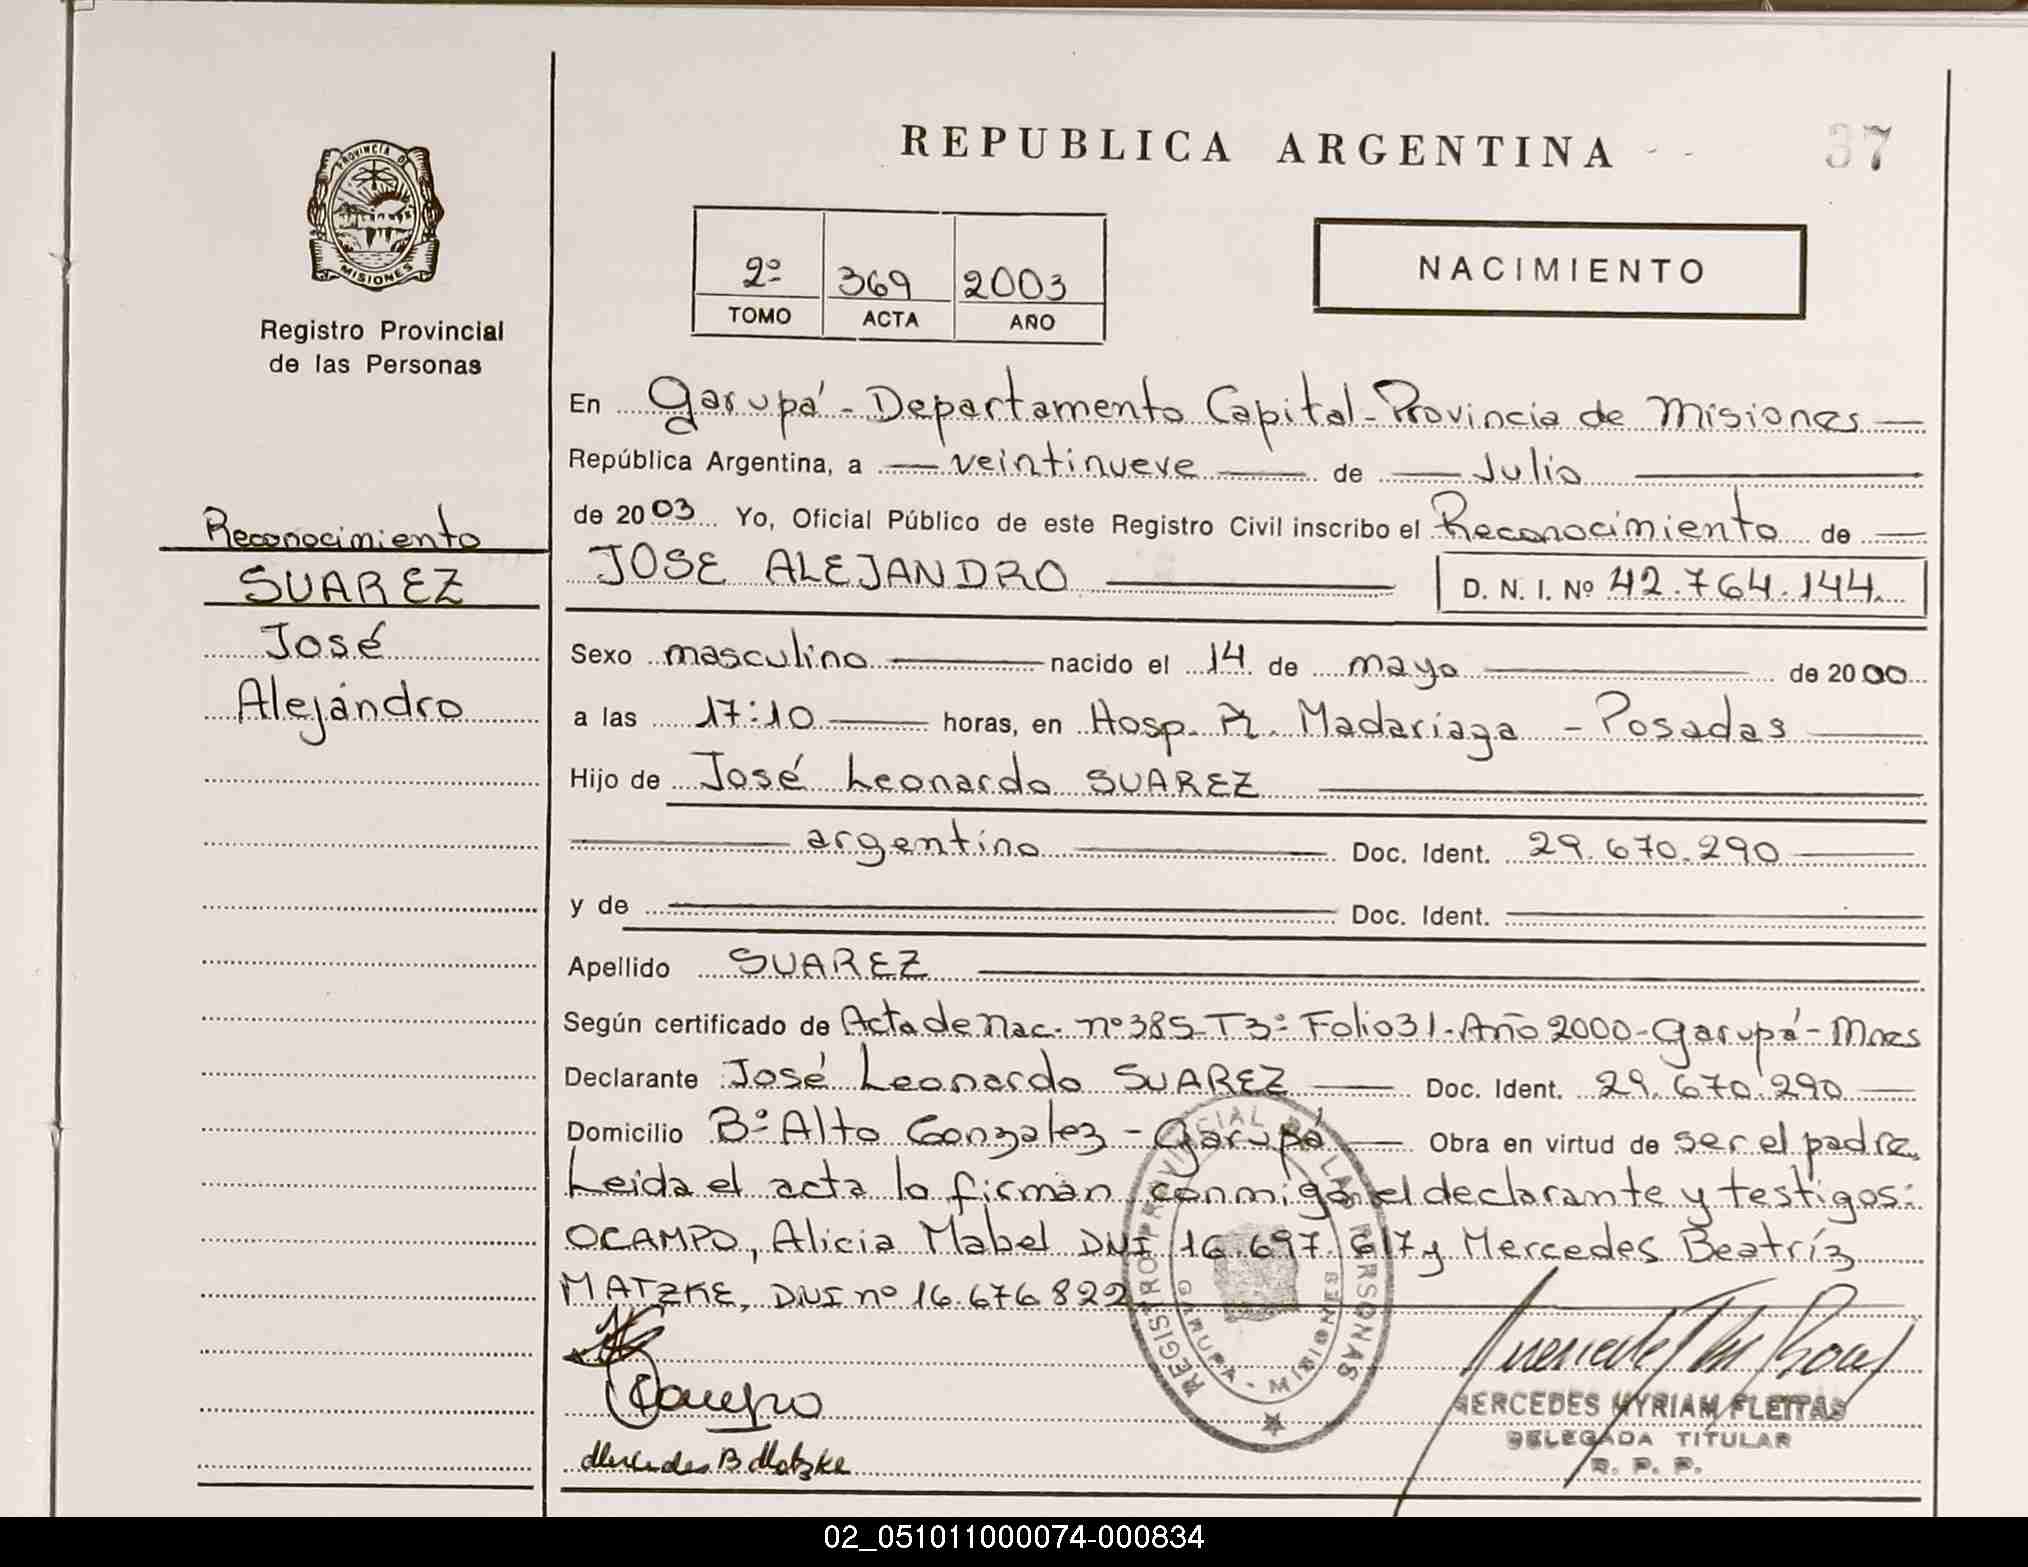 REPUBLICA ARGENTINA
37
PROVINCIA DE
MISIONES
Registro Provincial
de las Personas
2º 369 2003
TOMO ACTA AÑO
NACIMIENTO
Reconocimiento
SUAREZ
José
Alejandro
En Garupá - Departamento Capital - Provincia de Misiones
República Argentina, a veintinueve de Julio
de 2003 Yo, Oficial Público de este Registro Civil inscribo el Reconocimiento de
JOSE ALEJANDRO D. N. I. Nº 42.764.144.
Sexo masculino nacido el 14 de mayo de 2000
a las 17:10 horas, en Hosp. R. Madariaga - Posadas
Hijo de José Leonardo SUAREZ
argentino Doc. Ident. 29.670.290
y de Doc. Ident.
Apellido SUAREZ
Según certificado de Acta de Nac. nº 385 - T3º Folio 31 - Año 2000 - Garupá - Mnes
Declarante José Leonardo SUAREZ Doc. Ident. 29.670.290
Domicilio Bº Alto Gonzalez - Garupá Obra en virtud de ser el padre.
Leida el acta la firman conmigo el declarante y testigos:
OCAMPO, Alicia Mabel DNI 16.697.617 y Mercedes Beatríz
MATZKE, DNI nº 16.676.822
REGISTRO PROVINCIAL DE LAS PERSONAS
GARUPA - MISIONES
Ocampo
Mercedes B Matzke
MERCEDES MYRIAM FLEITAS
DELEGADA TITULAR
R. P. P.
02_051011000074-000834